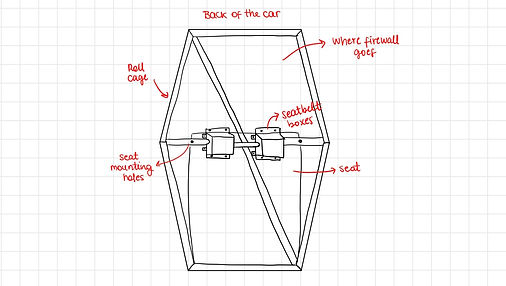 Back of the car
where firewall
goes
Roll
cage
seatbelt
boxes
seat
mounting
holes
seat